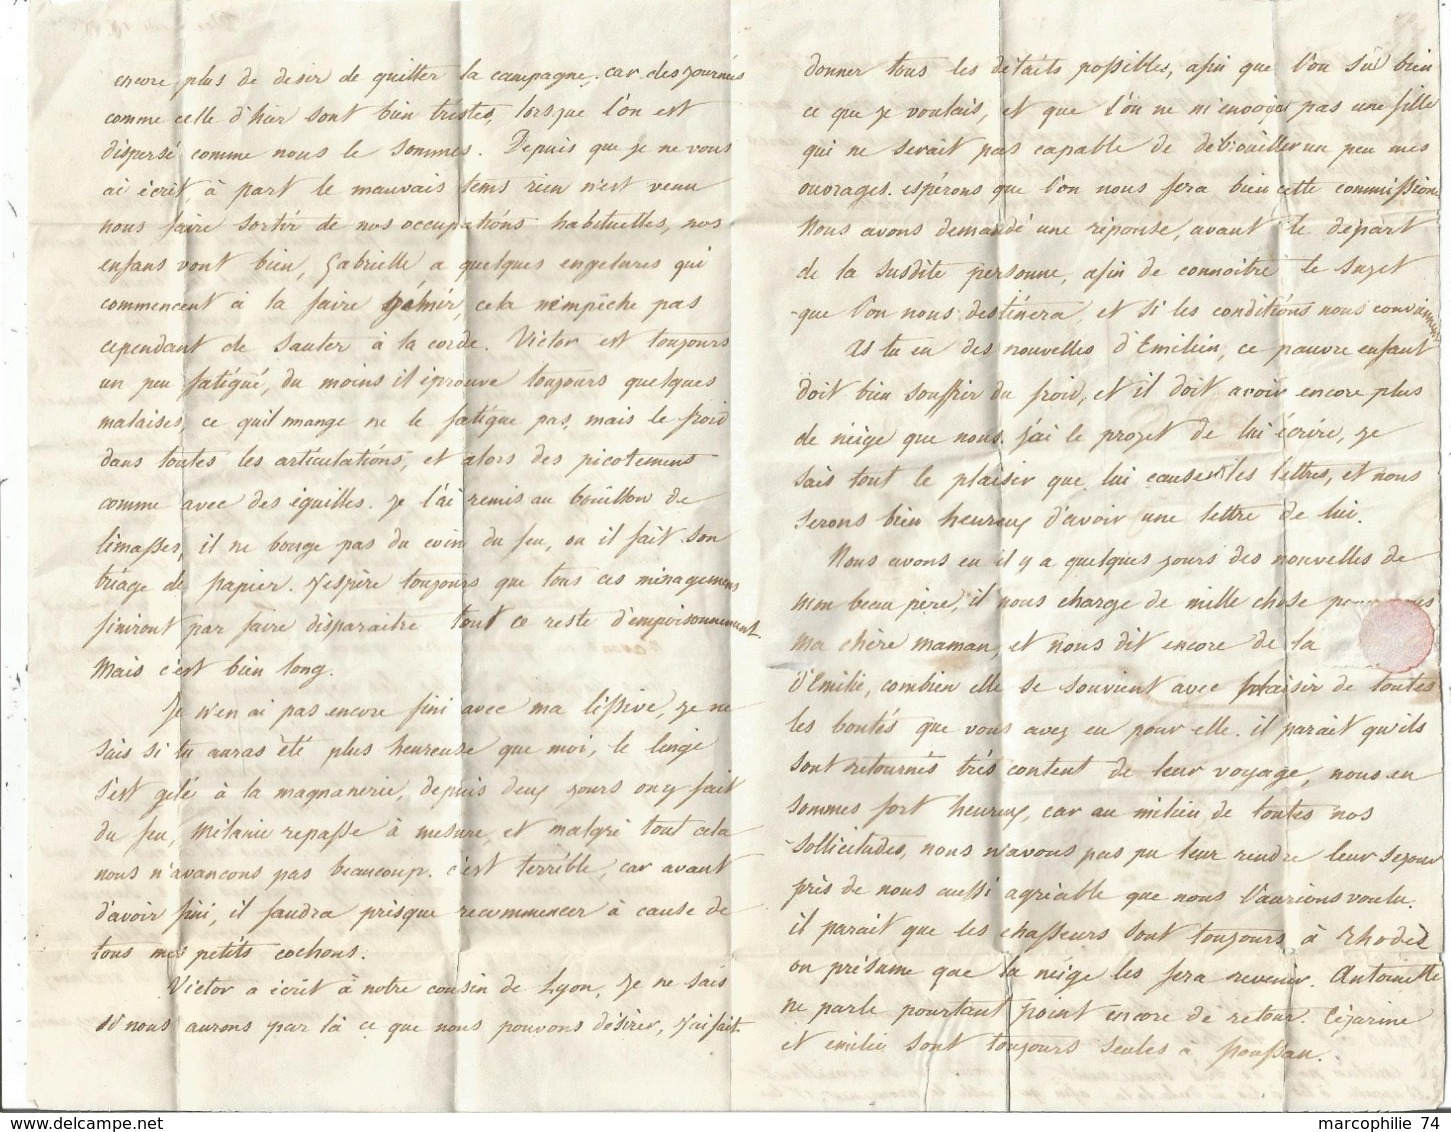 encore plus de desir de quitter la campagne, car des journées
comme celle d'hier sont bien tristes, lorsque l'on est
dispersé comme nous le sommes. Depuis que je ne vous
ai écrit, à part le mauvais tems rien n'est venu
nous faire sortir de nos occupations habituelles, nos
enfans vont bien, Gabrielle a quelques engelures qui
commencent à la faire gémir, cela n'empêche pas
cependant de sauter à la corde. Victor est toujours
un peu fatigué, du moins il éprouve toujours quelques
malaises, ce qu'il mange ne le fatigue pas, mais le froid
dans toutes les articulations, et alors des picotemens
comme avec des éguilles. je l'ai remis au bouillon de
limasses, il ne bouge pas du coin du feu, ou il fait son
triage de papier. J'espère toujours que tous ces ménagemens
finiront par faire disparaitre tout ce reste d'empoisonnement.
Mais c'est bien long.
Je n'en ai pas encore fini avec ma lissive, je ne
sais si tu auras été plus heureuse que moi, le linge
s'est gelé à la magnanerie, depuis deux jours on y fait
du feu, Mélanie repasse à mesure, et malgré tout cela
nous n'avancons pas beaucoup. c'est terrible, car avant
d'avoir fini, il faudra presque recommencer à cause de
tous mes petits cochons.
Victor a écrit à notre cousin de Lyon, je ne sais
si nous aurons par là ce que nous pouvons désirer, j'ai fait
donner tous les détails possibles, afin que l'on sut bien
ce que je voulais, et que l'on ne m'envoie pas une fille
qui ne serait pas capable de débrouiller un peu mes
ouvrages. espérons que l'on nous fera bien cette commission.
Nous avons demandé une réponse, avant le départ
de la susdite personne, afin de connoitre le sujet
que l'on nous destinera, et si les conditions nous conviennent
As tu eu des nouvelles d'Emilien, ce pauvre enfant
doit bien souffrir du froid, et il doit avoir encore plus
de neige que nous. j'ai le projet de lui écrire, je
sais tout le plaisir que lui causent les lettres, et nous
serons bien heureux d'avoir une lettre de lui.
Nous avons eu il y a quelques jours des nouvelles de
mon beau père, il nous charge de mille chose pour
ma chère maman, et nous dit encore de la
d'Emilie, combien elle se souvient avec plaisir de toutes
les bontés que vous avez eu pour elle. il parait qu'ils
sont retournés très content de leur voyage, nous en
sommes fort heureux, car au milieu de toutes nos
sollicitudes, nous n'avons pas pu leur rendre leur sejour
près de nous aussi agréable que nous l'aurions voulu.
il parait que les chasseurs sont toujours à Rhodez
on présume que la neige les fera revenir. Antoinette
ne parle pourtant point encore de retour. Cézarine
et emilie sont toujours seules à Poussan.
marcophilie 74